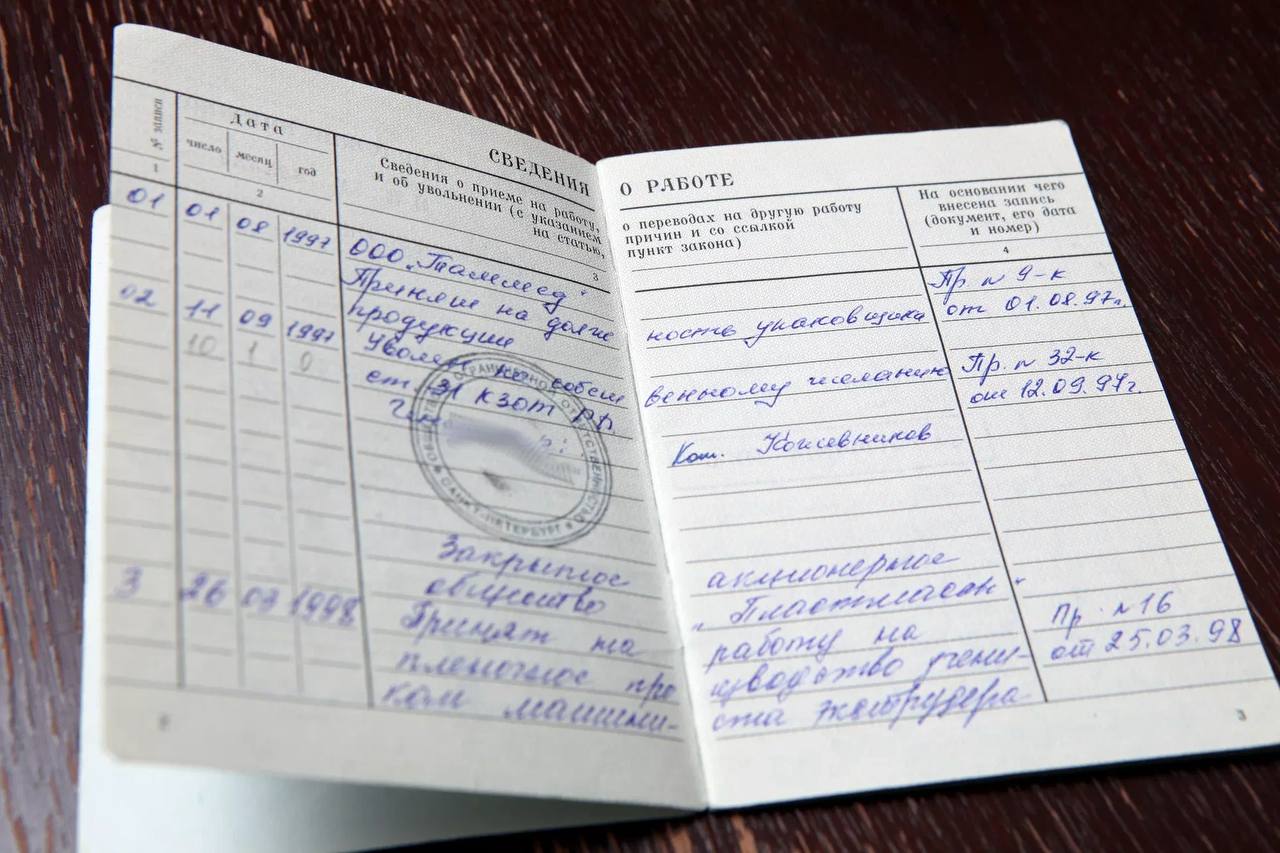 СВЕДЕНИЯ О РАБОТЕ
№ записи
Дата
число месяц год
Сведения о приеме на работу, о переводах на другую работу
и об увольнении (с указанием причин и со ссылкой
на статью, пункт закона)
На основании чего
внесена запись
(документ, его дата
и номер)
1 2 3 4
01 01 08 1997 ООО „Таммед"
Принят на долж ность упаковщика Пр n 9-к
продукции от 01.08.97г.
02 11 09 1997 Уволен по собст венному желанию Пр. n 32-к
10 1 0
ст 31 КЗОТ РФ от 12.09.97г.
Кожевников
ОТВЕТСТВЕННОСТЬЮ
САНКТ-ПЕТЕРБУРГ
Закрытое акционерное
общество „Пластпласт"
3 26 03 1998 Принят на работу на Пр. n 16
пленочное про изводство учени- от 25.03.98
ком машини- ста экструдера
3